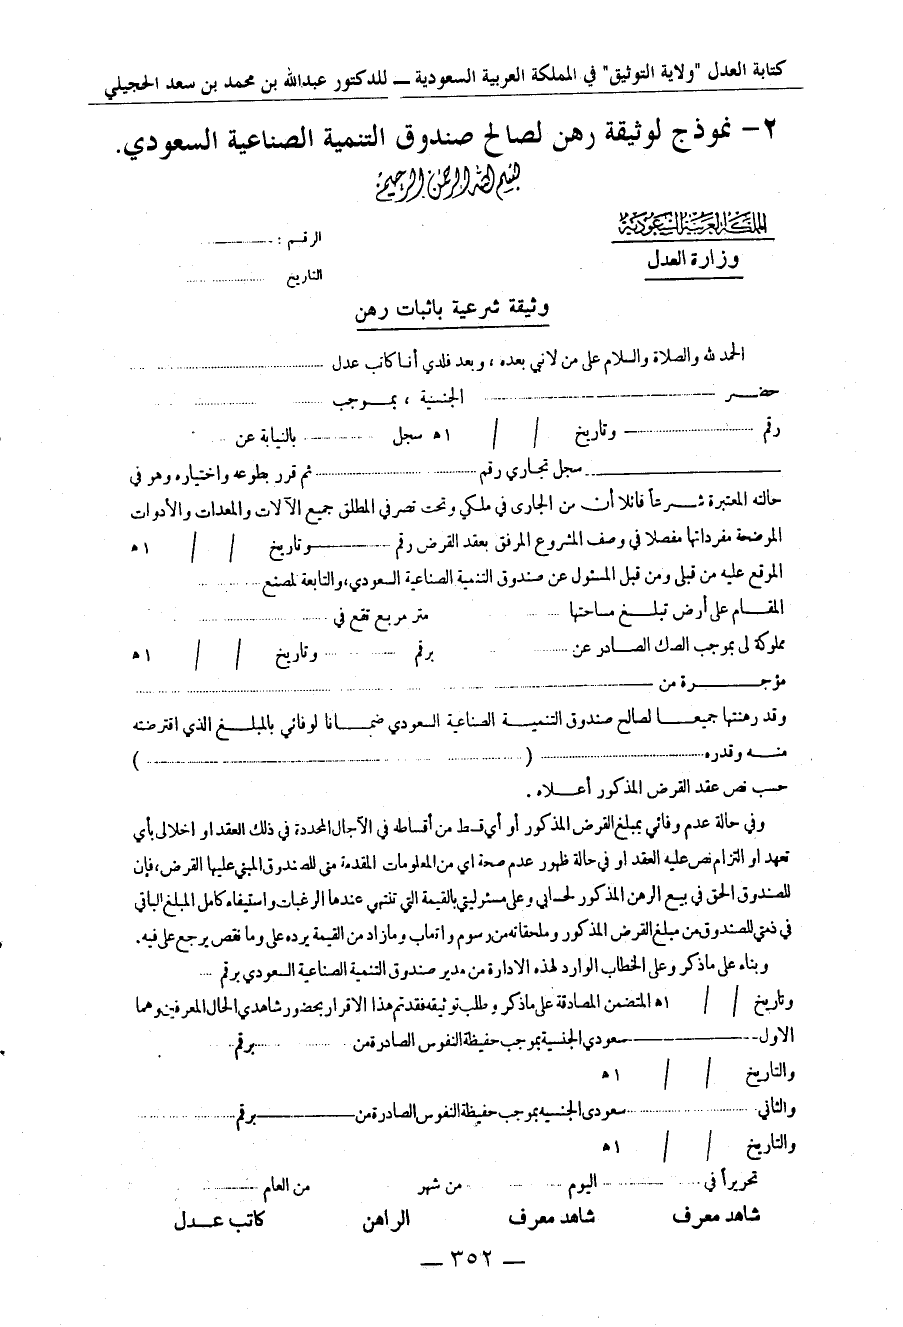 كتابة العدل "ولاية التوثيق" في المملكة العربية السعودية ــ للدكتور عبدالله بن محمد بن سعد الحجيلي
٢- نموذج لوثيقة رهن لصالح صندوق التنمية الصناعية السعودي.
بسم الله الرحمن الرحيم
المملكة العربية السعودية
الرقم : ............
وزارة العدل
التاريخ ............
وثيقة شرعية باثبات رهن
الحمد لله والصلاة والسلام على من لا نبي بعده ، وبعد فلدي أنا كاتب عدل ............
حضر ............ الجنسية ، بموجب ............
رقم ............ وتاريخ / / ١ه سجل ............ بالنيابة عن
............ سجل تجاري رقم ............ ثم قرر بطوعه واختياره وهو في
حالته المعتبرة شرعاً قائلا أن من الجاري في ملكي وتحت تصرفي المطلق جميع الآلات والمعدات والأدوات
الموضحة مفرداتها مفصلا في وصف المشروع المرفق بعقد القرض رقم ............ وتاريخ / / ١ه
الموقع عليه من قبلي ومن قبل المسئول عن صندوق التنمية الصناعية السعودي، والتابعة لمصنع ............
المقام على أرض تبلغ مساحتها ............ متر مربع تقع في ............
مملوكة لى بموجب الصك الصادر عن ............ برقم ............ وتاريخ / / ١ه
مؤجرة من ............
وقد رهنتها جميعا لصالح صندوق التنمية الصناعية السعودي ضمانا لوفائي بالمبلغ الذي اقترضته
منه وقدره ............ ( ............ )
حسب نص عقد القرض المذكور أعلاه .
وفي حالة عدم وفائي بمبلغ القرض المذكور أو أي قسط من أقساطه في الآجال المحددة في ذلك العقد او اخلالى بأي
تعهد او التزام نص عليه العقد او في حالة ظهور عدم صحة اي من المعلومات المقدمة منى للصندوق المبني عليها القرض، فإن
للصندوق الحق في بيع الرهن المذكور لحسابي وعلى مسئوليتي بالقيمة التي تنتهي عندها الرغبات واستيفاء كامل المبلغ الباقي
في ذمتي للصندوق من مبلغ القرض المذكور وملحقاته من رسوم واتعاب وما زاد من القيمة يرده على وما نقص يرجع على فيه.
وبناء على ماذكر وعلى الخطاب الوارد لهذه الادارة من مدير صندوق التنمية الصناعية السعودي برقم ....
وتاريخ / / ١ه المتضمن المصادقة على ماذكر وطلب توثيقه فقد تم هذا الاقرار بحضور شاهدي الحال المعرفين وهما
الاول ............ سعودي الجنسية بموجب حفيظة النفوس الصادرة من ............ برقم ....
والتاريخ / / ١ه
والثاني ............ سعودى الجنسيه بموجب حفيظة النفوس الصادرة من ............ برقم ............
والتاريخ / / ١ه
تحريراً في ............ اليوم ............ من شهر ............ من العام ............
شاهد معرف شاهد معرف الراهن كاتب عدل
ــ ٣٥٢ ــ